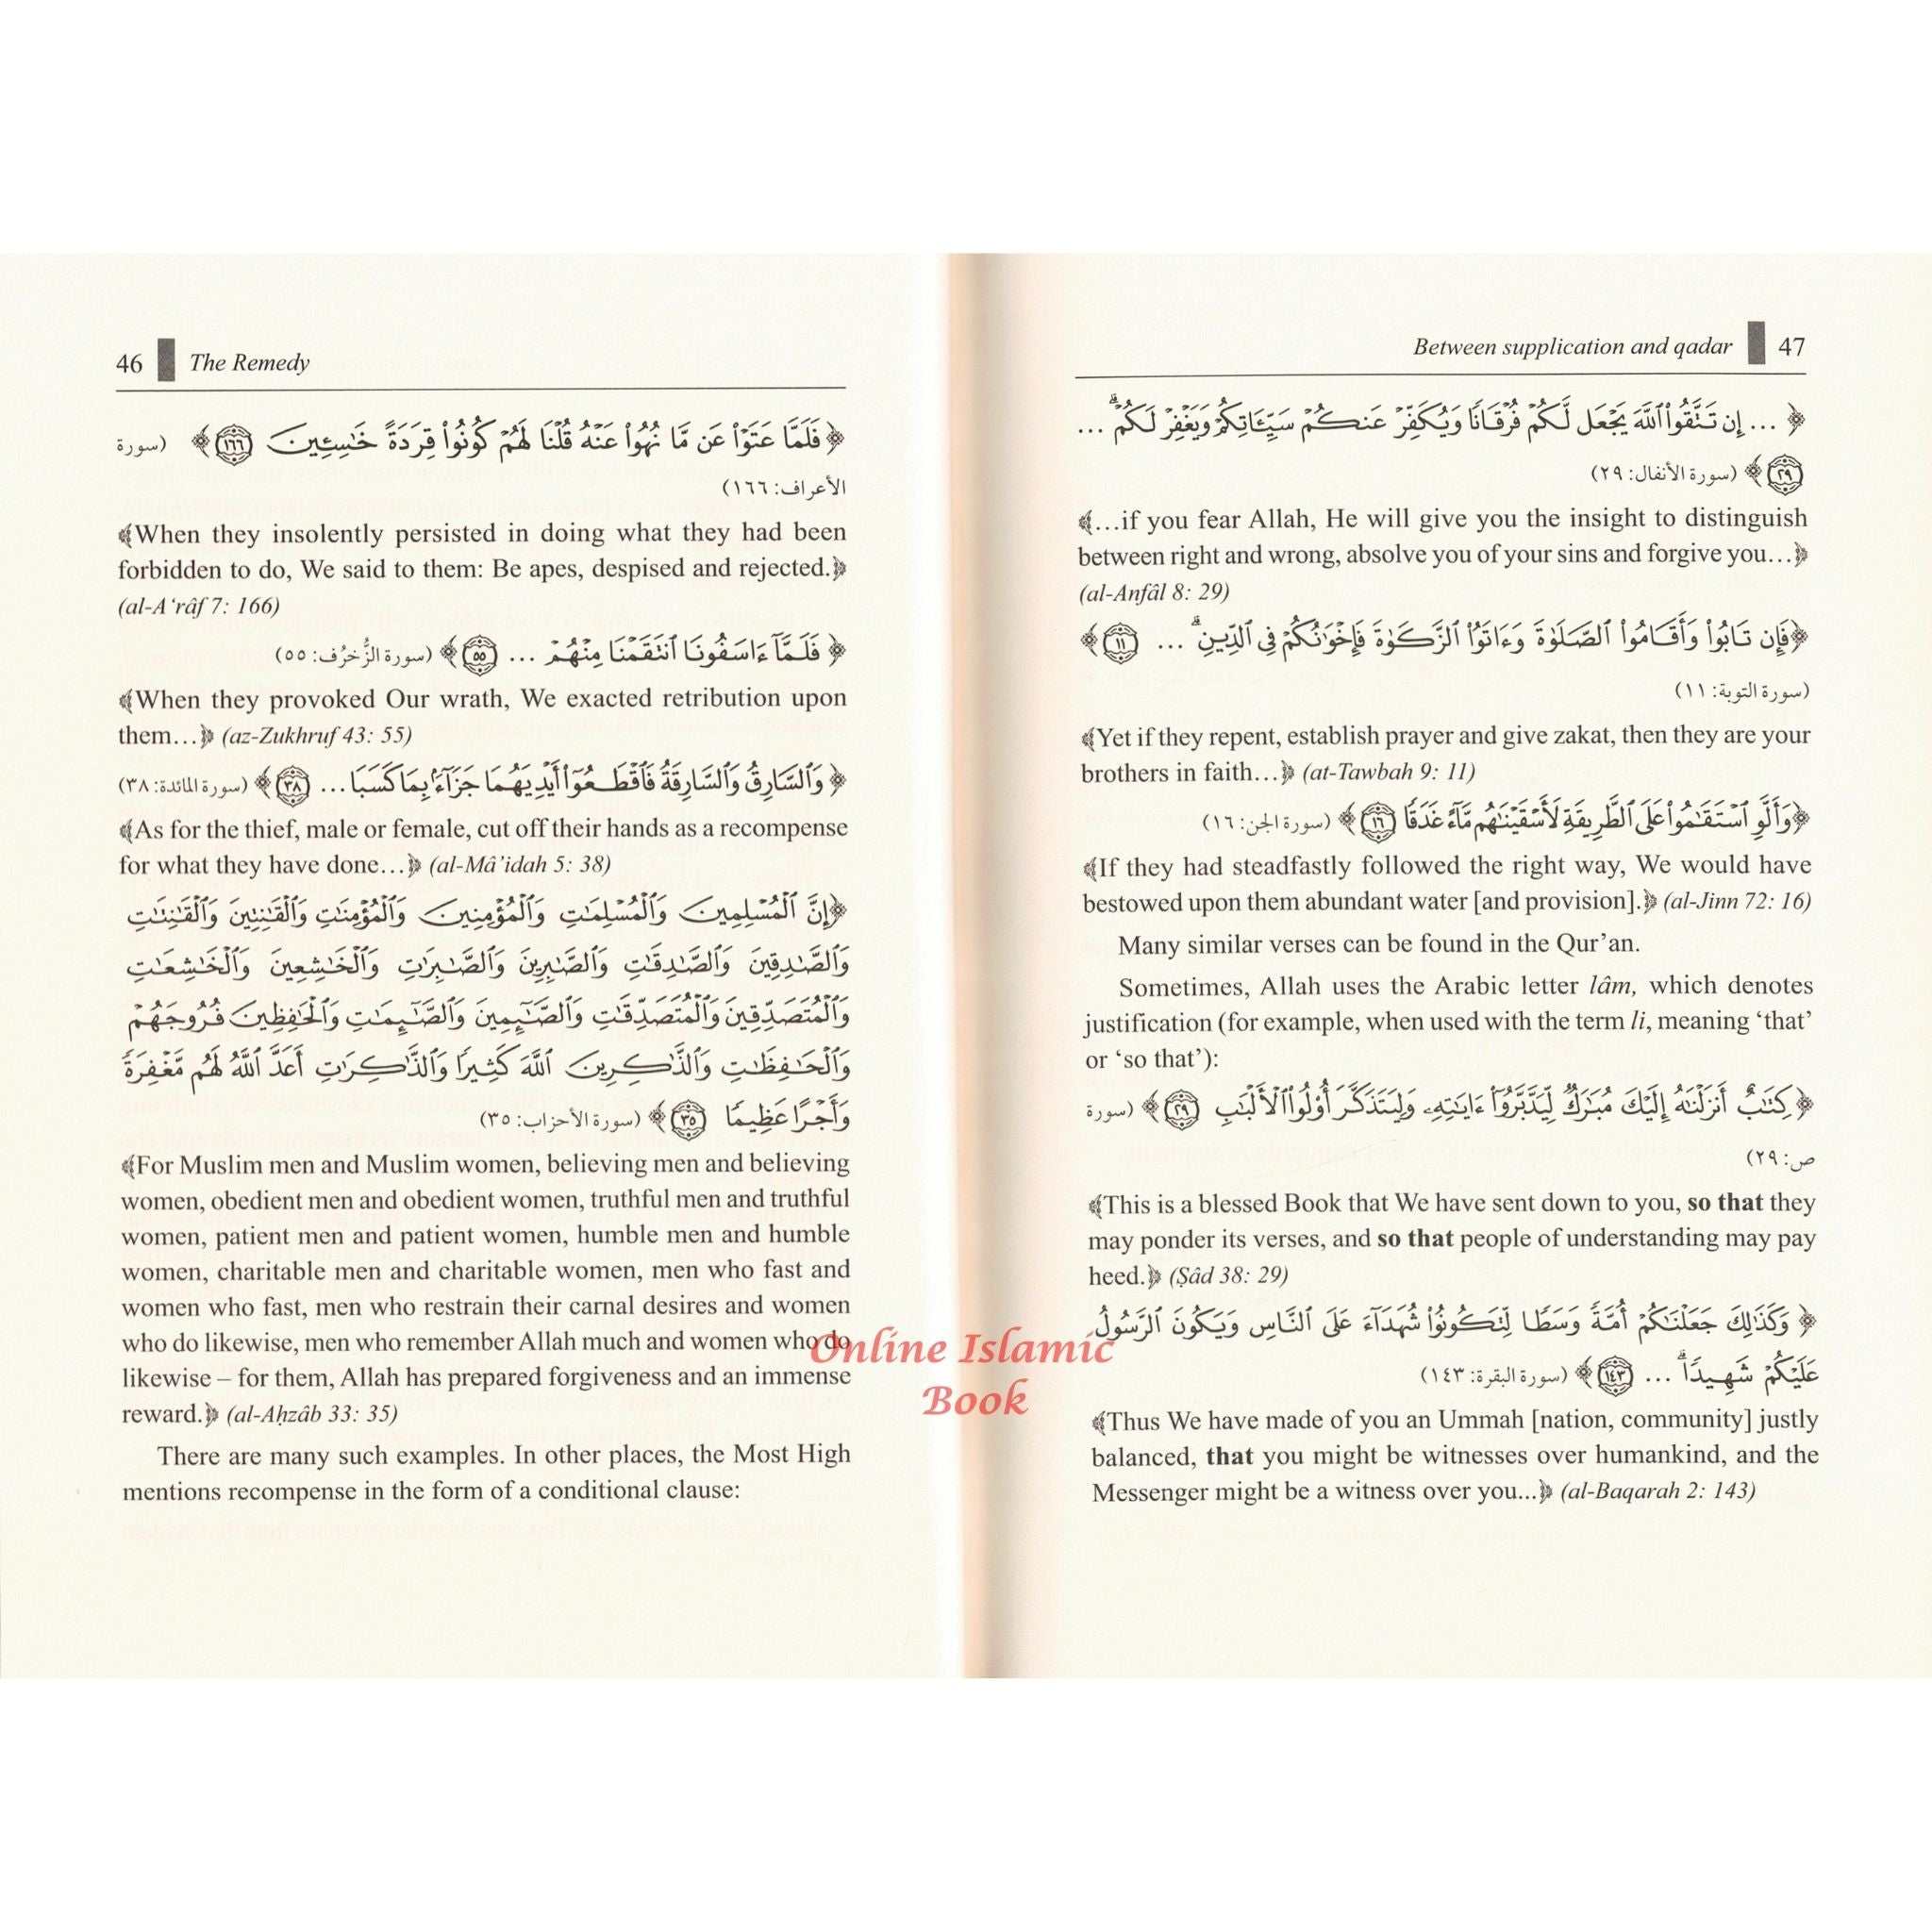 46 The Remedy
﴿ فَلَمَّا عَتَوْا۟ عَن مَّا نُهُوا۟ عَنْهُ قُلْنَا لَهُمْ كُونُوا۟ قِرَدَةً خَـٰسِـِٔينَ ١٦٦ ﴾ (سورة
الأعراف: ١٦٦)
﴾When they insolently persisted in doing what they had been
forbidden to do, We said to them: Be apes, despised and rejected.﴿
(al-A‘râf 7: 166)
﴿ فَلَمَّآ ءَاسَفُونَا ٱنتَقَمْنَا مِنْهُمْ ... ٥٥ ﴾ (سورة الزُّخرُف: ٥٥)
﴾When they provoked Our wrath, We exacted retribution upon
them…﴿ (az-Zukhruf 43: 55)
﴿ وَٱلسَّارِقُ وَٱلسَّارِقَةُ فَٱقْطَعُوٓا۟ أَيْدِيَهُمَا جَزَآءًۢ بِمَا كَسَبَا ... ٣٨ ﴾ (سورة المائدة: ٣٨)
﴾As for the thief, male or female, cut off their hands as a recompense
for what they have done…﴿ (al-Mâ’idah 5: 38)
﴿إِنَّ ٱلْمُسْلِمِينَ وَٱلْمُسْلِمَـٰتِ وَٱلْمُؤْمِنِينَ وَٱلْمُؤْمِنَـٰتِ وَٱلْقَـٰنِتِينَ وَٱلْقَـٰنِتَـٰتِ
وَٱلصَّـٰدِقِينَ وَٱلصَّـٰدِقَـٰتِ وَٱلصَّـٰبِرِينَ وَٱلصَّـٰبِرَٰتِ وَٱلْخَـٰشِعِينَ وَٱلْخَـٰشِعَـٰتِ
وَٱلْمُتَصَدِّقِينَ وَٱلْمُتَصَدِّقَـٰتِ وَٱلصَّـٰٓئِمِينَ وَٱلصَّـٰٓئِمَـٰتِ وَٱلْحَـٰفِظِينَ فُرُوجَهُمْ
وَٱلْحَـٰفِظَـٰتِ وَٱلذَّٰكِرِينَ ٱللَّهَ كَثِيرًا وَٱلذَّٰكِرَٰتِ أَعَدَّ ٱللَّهُ لَهُم مَّغْفِرَةً
وَأَجْرًا عَظِيمًا ٣٥ ﴾ (سورة الأحزاب: ٣٥)
﴾For Muslim men and Muslim women, believing men and believing
women, obedient men and obedient women, truthful men and truthful
women, patient men and patient women, humble men and humble
women, charitable men and charitable women, men who fast and
women who fast, men who restrain their carnal desires and women
who do likewise, men who remember Allah much and women who do
likewise – for them, Allah has prepared forgiveness and an immense
reward.﴿ (al-Aḥzâb 33: 35)
There are many such examples. In other places, the Most High
mentions recompense in the form of a conditional clause:
Between supplication and qadar 47
﴿ ... إِن تَتَّقُوا۟ ٱللَّهَ يَجْعَل لَّكُمْ فُرْقَانًا وَيُكَفِّرْ عَنكُمْ سَيِّـَٔاتِكُمْ وَيَغْفِرْ لَكُمْ ۗ ...
٢٩ ﴾ (سورة الأنفال: ٢٩)
﴾…if you fear Allah, He will give you the insight to distinguish
between right and wrong, absolve you of your sins and forgive you…﴿
(al-Anfâl 8: 29)
﴿فَإِن تَابُوا۟ وَأَقَامُوا۟ ٱلصَّلَوٰةَ وَءَاتَوُا۟ ٱلزَّكَوٰةَ فَإِخْوَٰنُكُمْ فِى ٱلدِّينِ ۗ ... ١١ ﴾
(سورة التوبة: ١١)
﴾Yet if they repent, establish prayer and give zakat, then they are your
brothers in faith…﴿ (at-Tawbah 9: 11)
﴿وَأَلَّوِ ٱسْتَقَـٰمُوا۟ عَلَى ٱلطَّرِيقَةِ لَأَسْقَيْنَـٰهُم مَّآءً غَدَقًا ١٦ ﴾ (سورة الجن: ١٦)
﴾If they had steadfastly followed the right way, We would have
bestowed upon them abundant water [and provision].﴿ (al-Jinn 72: 16)
Many similar verses can be found in the Qur’an.
Sometimes, Allah uses the Arabic letter lâm, which denotes
justification (for example, when used with the term li, meaning ‘that’
or ‘so that’):
﴿ كِتَـٰبٌ أَنزَلْنَـٰهُ إِلَيْكَ مُبَـٰرَكٌ لِّيَدَّبَّرُوٓا۟ ءَايَـٰتِهِۦ وَلِيَتَذَكَّرَ أُو۟لُوا۟ ٱلْأَلْبَـٰبِ ٢٩ ﴾ (سورة
ص: ٢٩)
﴾This is a blessed Book that We have sent down to you, so that they
may ponder its verses, and so that people of understanding may pay
heed.﴿ (Ṣâd 38: 29)
﴿ وَكَذَٰلِكَ جَعَلْنَـٰكُمْ أُمَّةً وَسَطًا لِّتَكُونُوا۟ شُهَدَآءَ عَلَى ٱلنَّاسِ وَيَكُونَ ٱلرَّسُولُ
عَلَيْكُمْ شَهِيدًا ۗ ... ١٤٣ ﴾ (سورة البقرة: ١٤٣)
﴾Thus We have made of you an Ummah [nation, community] justly
balanced, that you might be witnesses over humankind, and the
Messenger might be a witness over you...﴿ (al-Baqarah 2: 143)
Online Islamic
Book